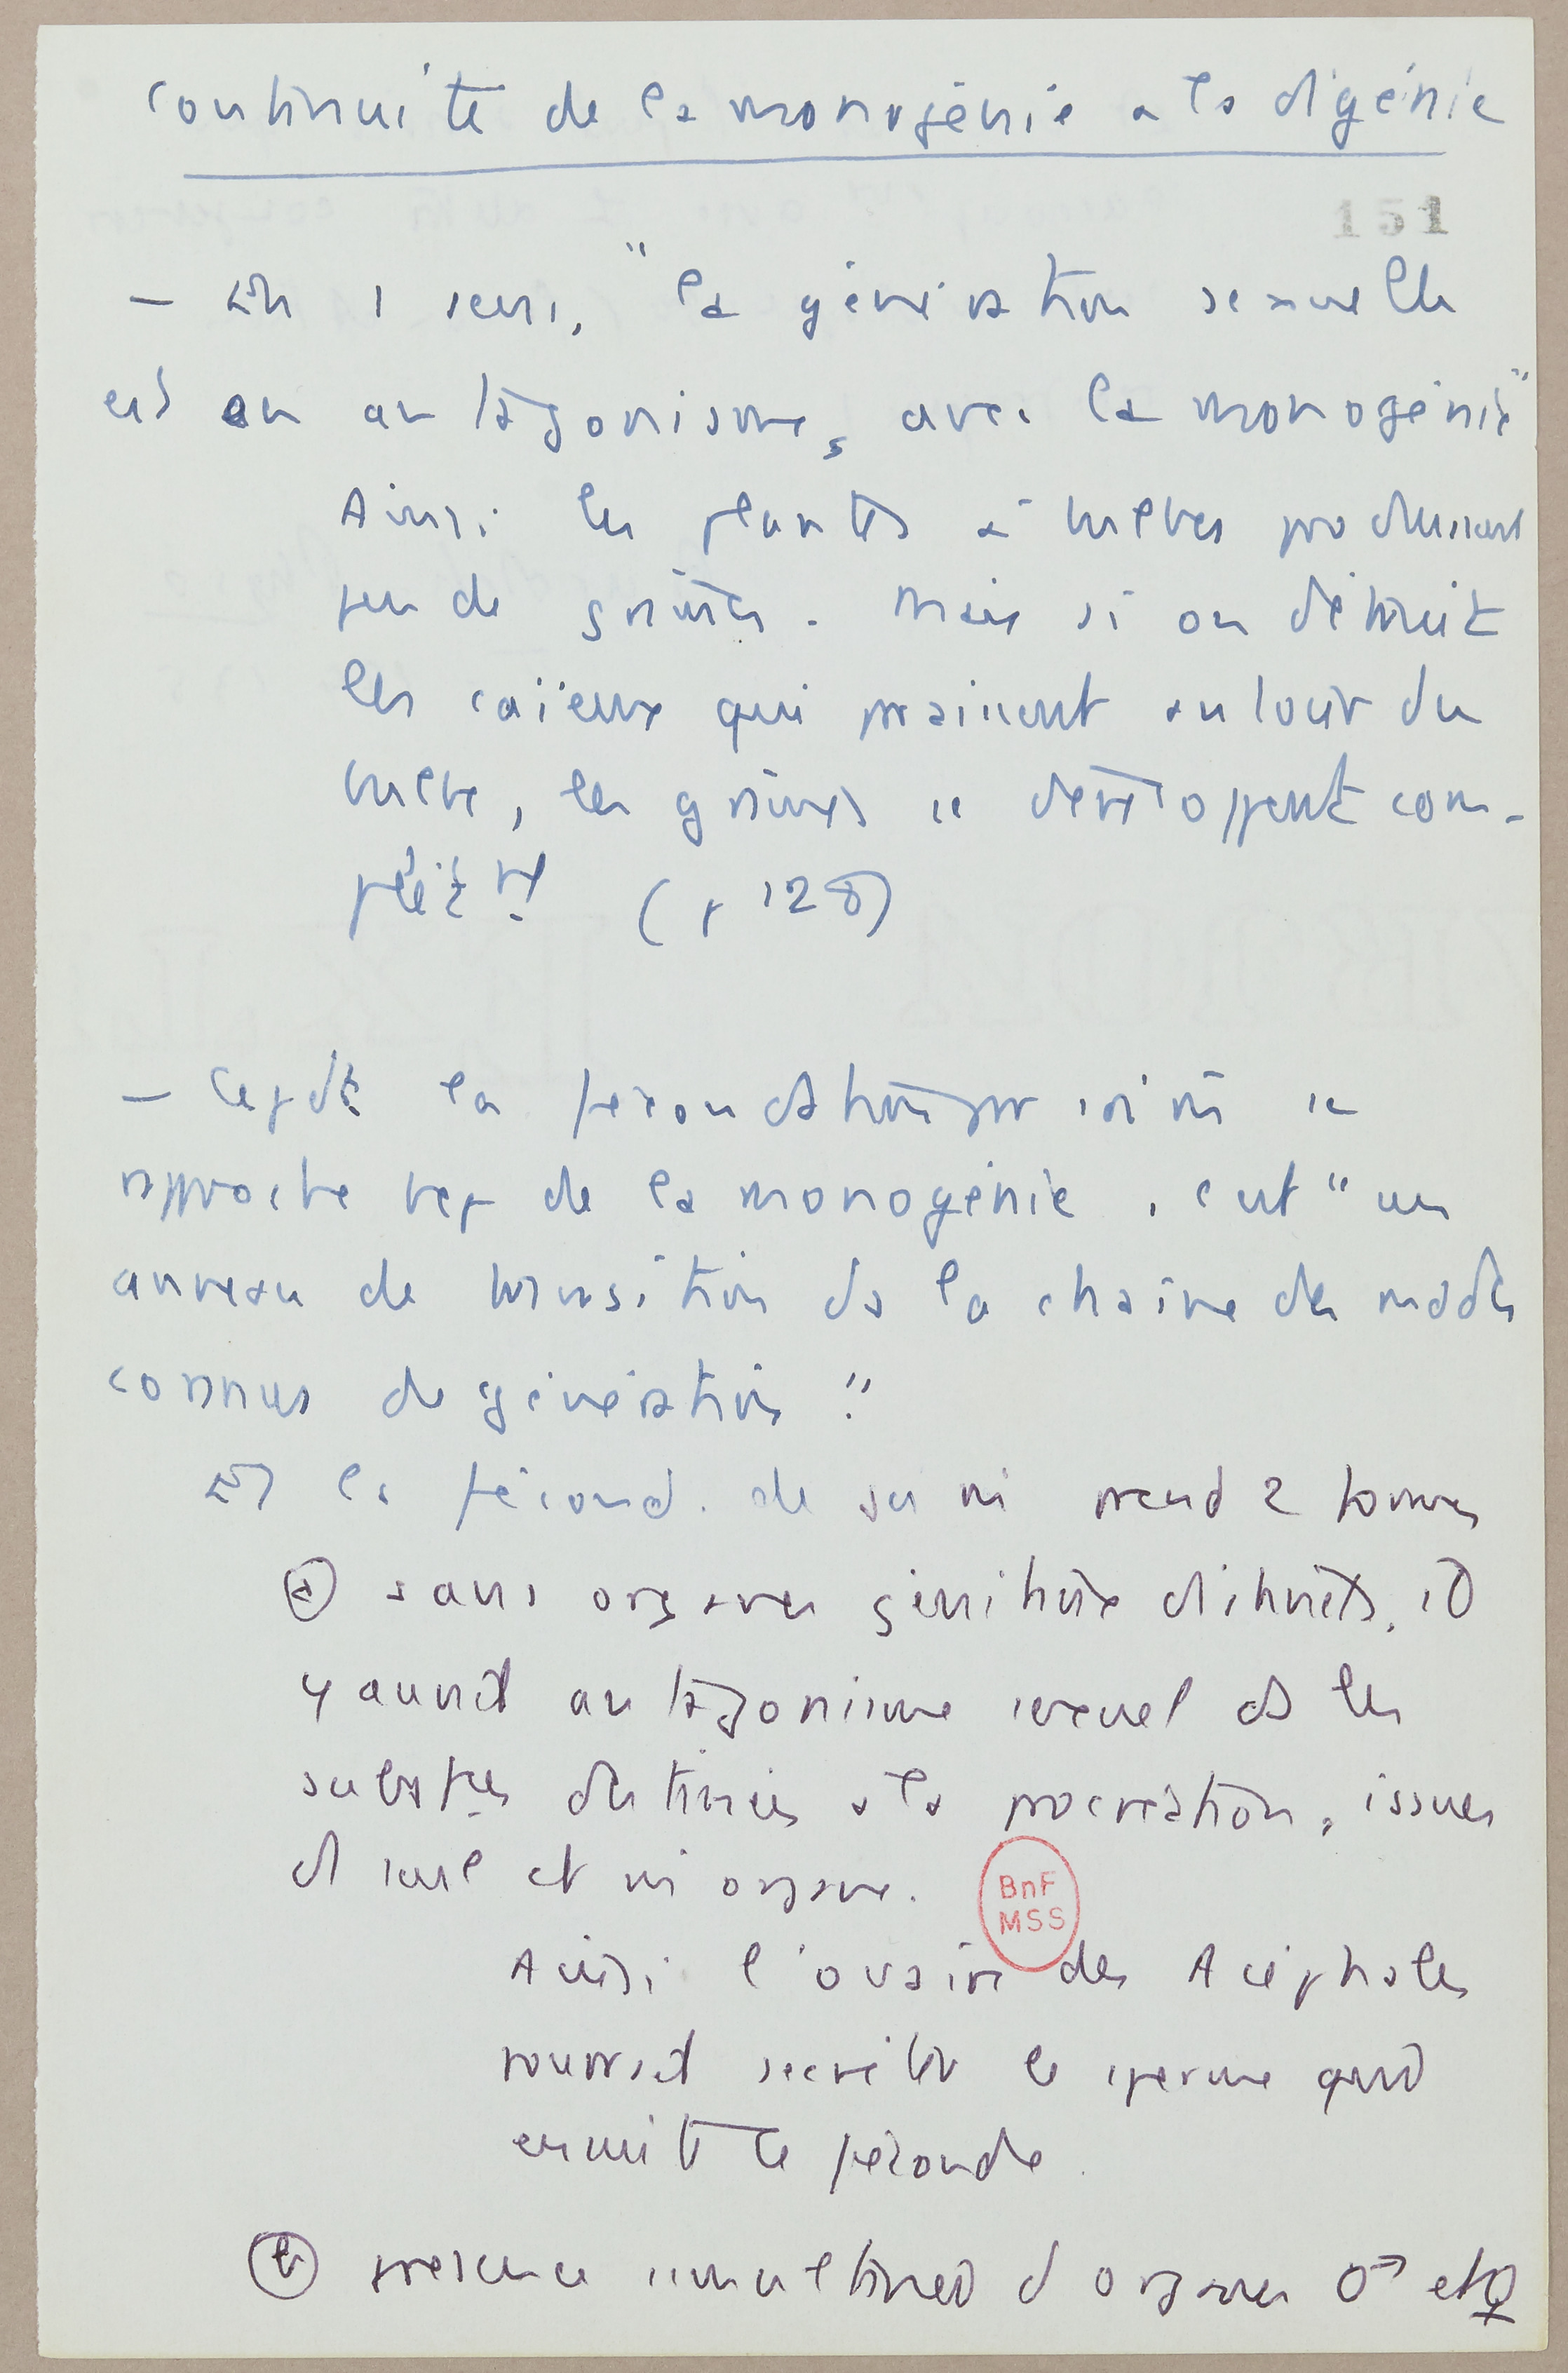 continuité de la monogénie a la digénie
151
— En 1 sens, "la génération sexuelle
est en antagonisme, avec la monogénie"
Ainsi les plantes à bulbes produisent
peu de graines. Mais si on détruit
les caïeux qui naissent autour du
bulbe, les graines se développent com-
plèt mt (p 128)
— Cepdt la fécondation par soi m̄ se
rapproche bcp de la monogénie. c'est "un
anneau de transition ds la chaîne des modes
connus de génération"
Et la fécond. de soi m̄ prend 2 formes
(a) sans organes génitaux distincts. il
y aurait antagonisme sexuel ds les
substces destinées a la procréation, issues
d'1 seul et m̄ organe.
BnF
MSS
Ainsi l'ovaire des Acéphales
pourrait secréter le sperme qui
ensuite le féconde.
(b) présence simultanée d'organes ♂ et ♀